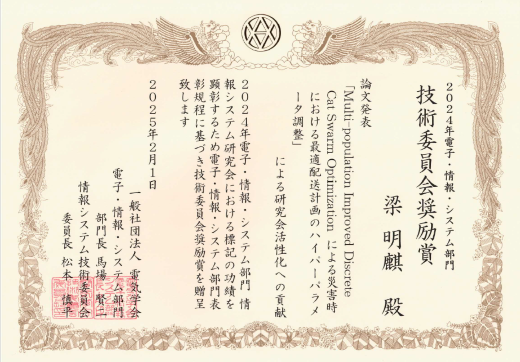 2024年電子・情報・システム部門
技術委員会奨励賞
梁 明麒 殿
論文発表
「Multi-population Improved Discrete
Cat Swarm Optimization による災害時
における最適配送計画のハイパーパラメ
ータ調整」
による研究会活性化への貢献
2024年電子・情報・システム部門 情
報システム研究会における標記の功績を
顕彰するため電子・情報・システム部門表
彰規程に基づき技術委員会奨励賞を贈呈
致します
2025年2月1日
一般社団法人 電気学会
電子・情報・システム部門
部門長 馬場 賢二
情報システム技術委員会
委員長 松本 慎平